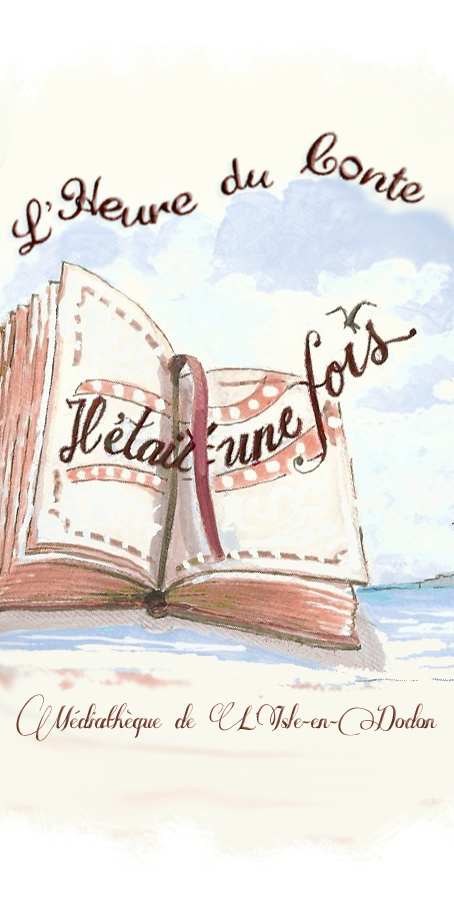 L'Heure du Conte
Il était une fois
Médiathèque de L'Isle-en-Dodon